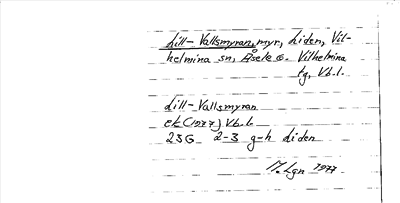 Lill-Vallsmyran, myr, Liden, Vil-
helmina sn, Åsele c. Vilhelmina
tg, Vb.l.
Lill-Vallsmyran
ek (1977) Vb.l.
23G 2-3 g-h Liden
M. Lgn 1977